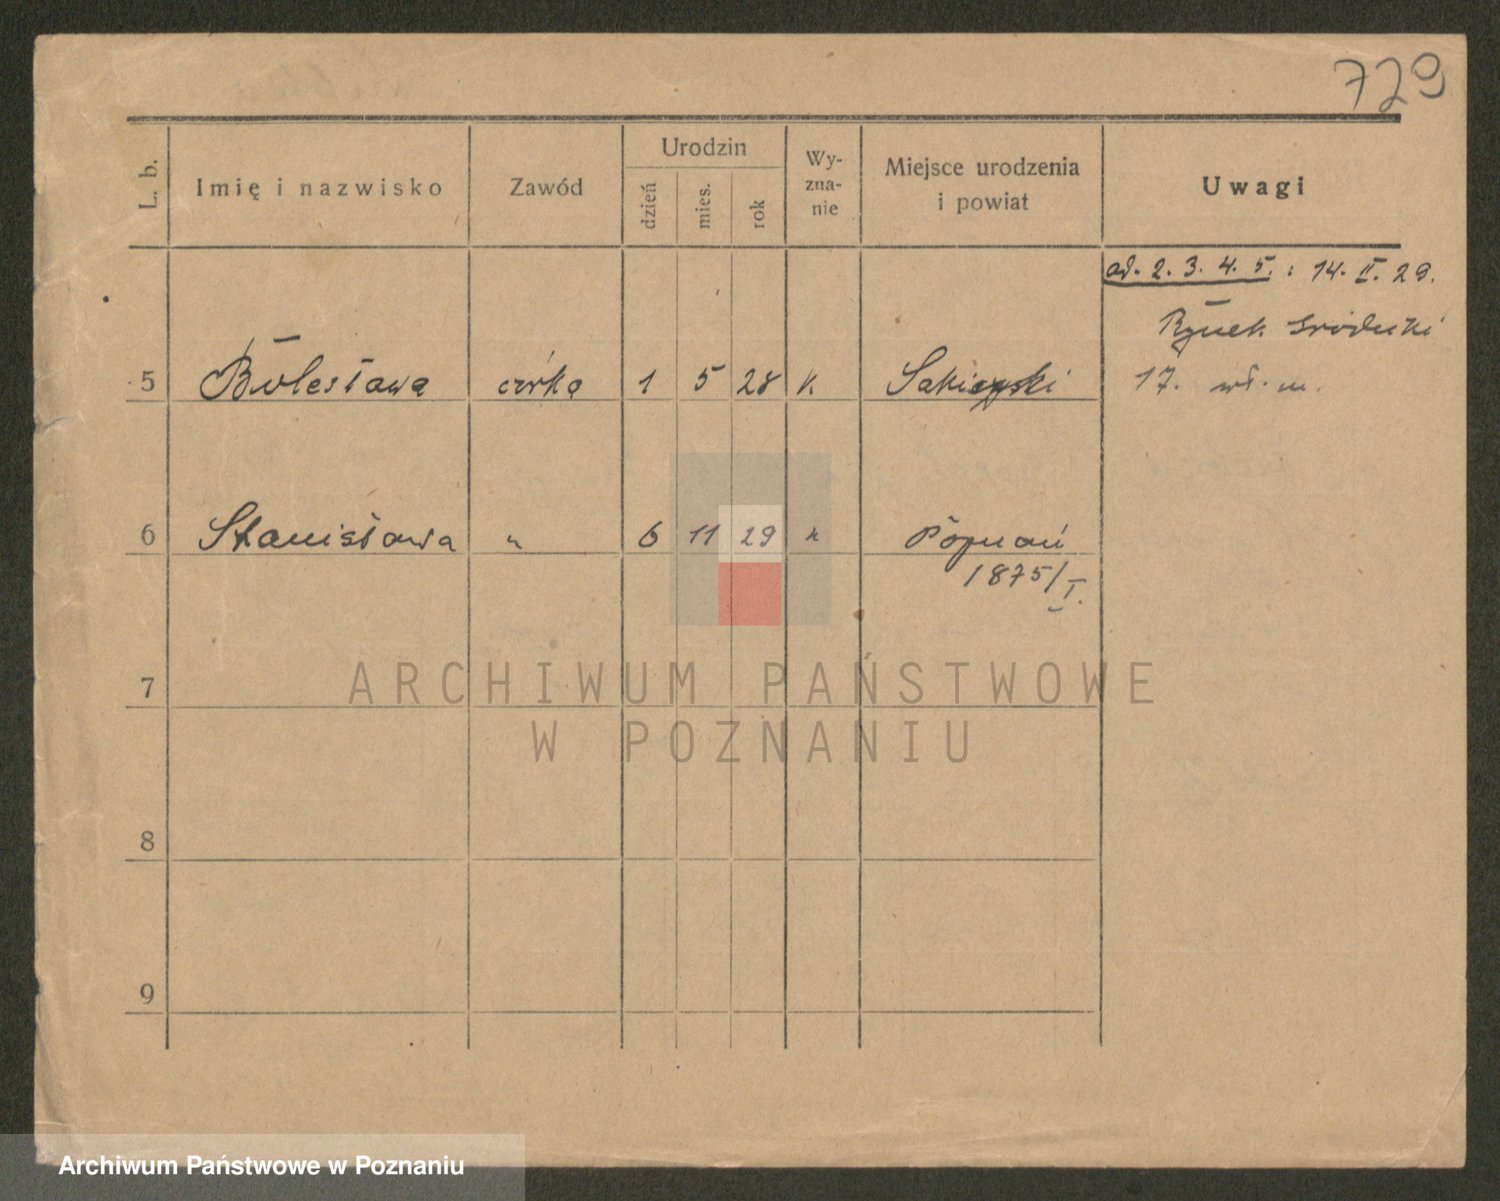 729
L. b.
Imię i nazwisko
Zawód
Urodzin
dzień
mies.
rok
Wy-
zna-
nie
Miejsce urodzenia
i powiat
Uwagi
ad. 2. 3. 4. 5. : 14. II. 29.
Rynek
17. wł. m.
5 Bolesława córka 1 5 28 k
6 Stanisława " 6 11 29 " Poznań
1875/I.
7
8
9
ARCHIWUM PAŃSTWOWE
W POZNANIU
Archiwum Państwowe w Poznaniu